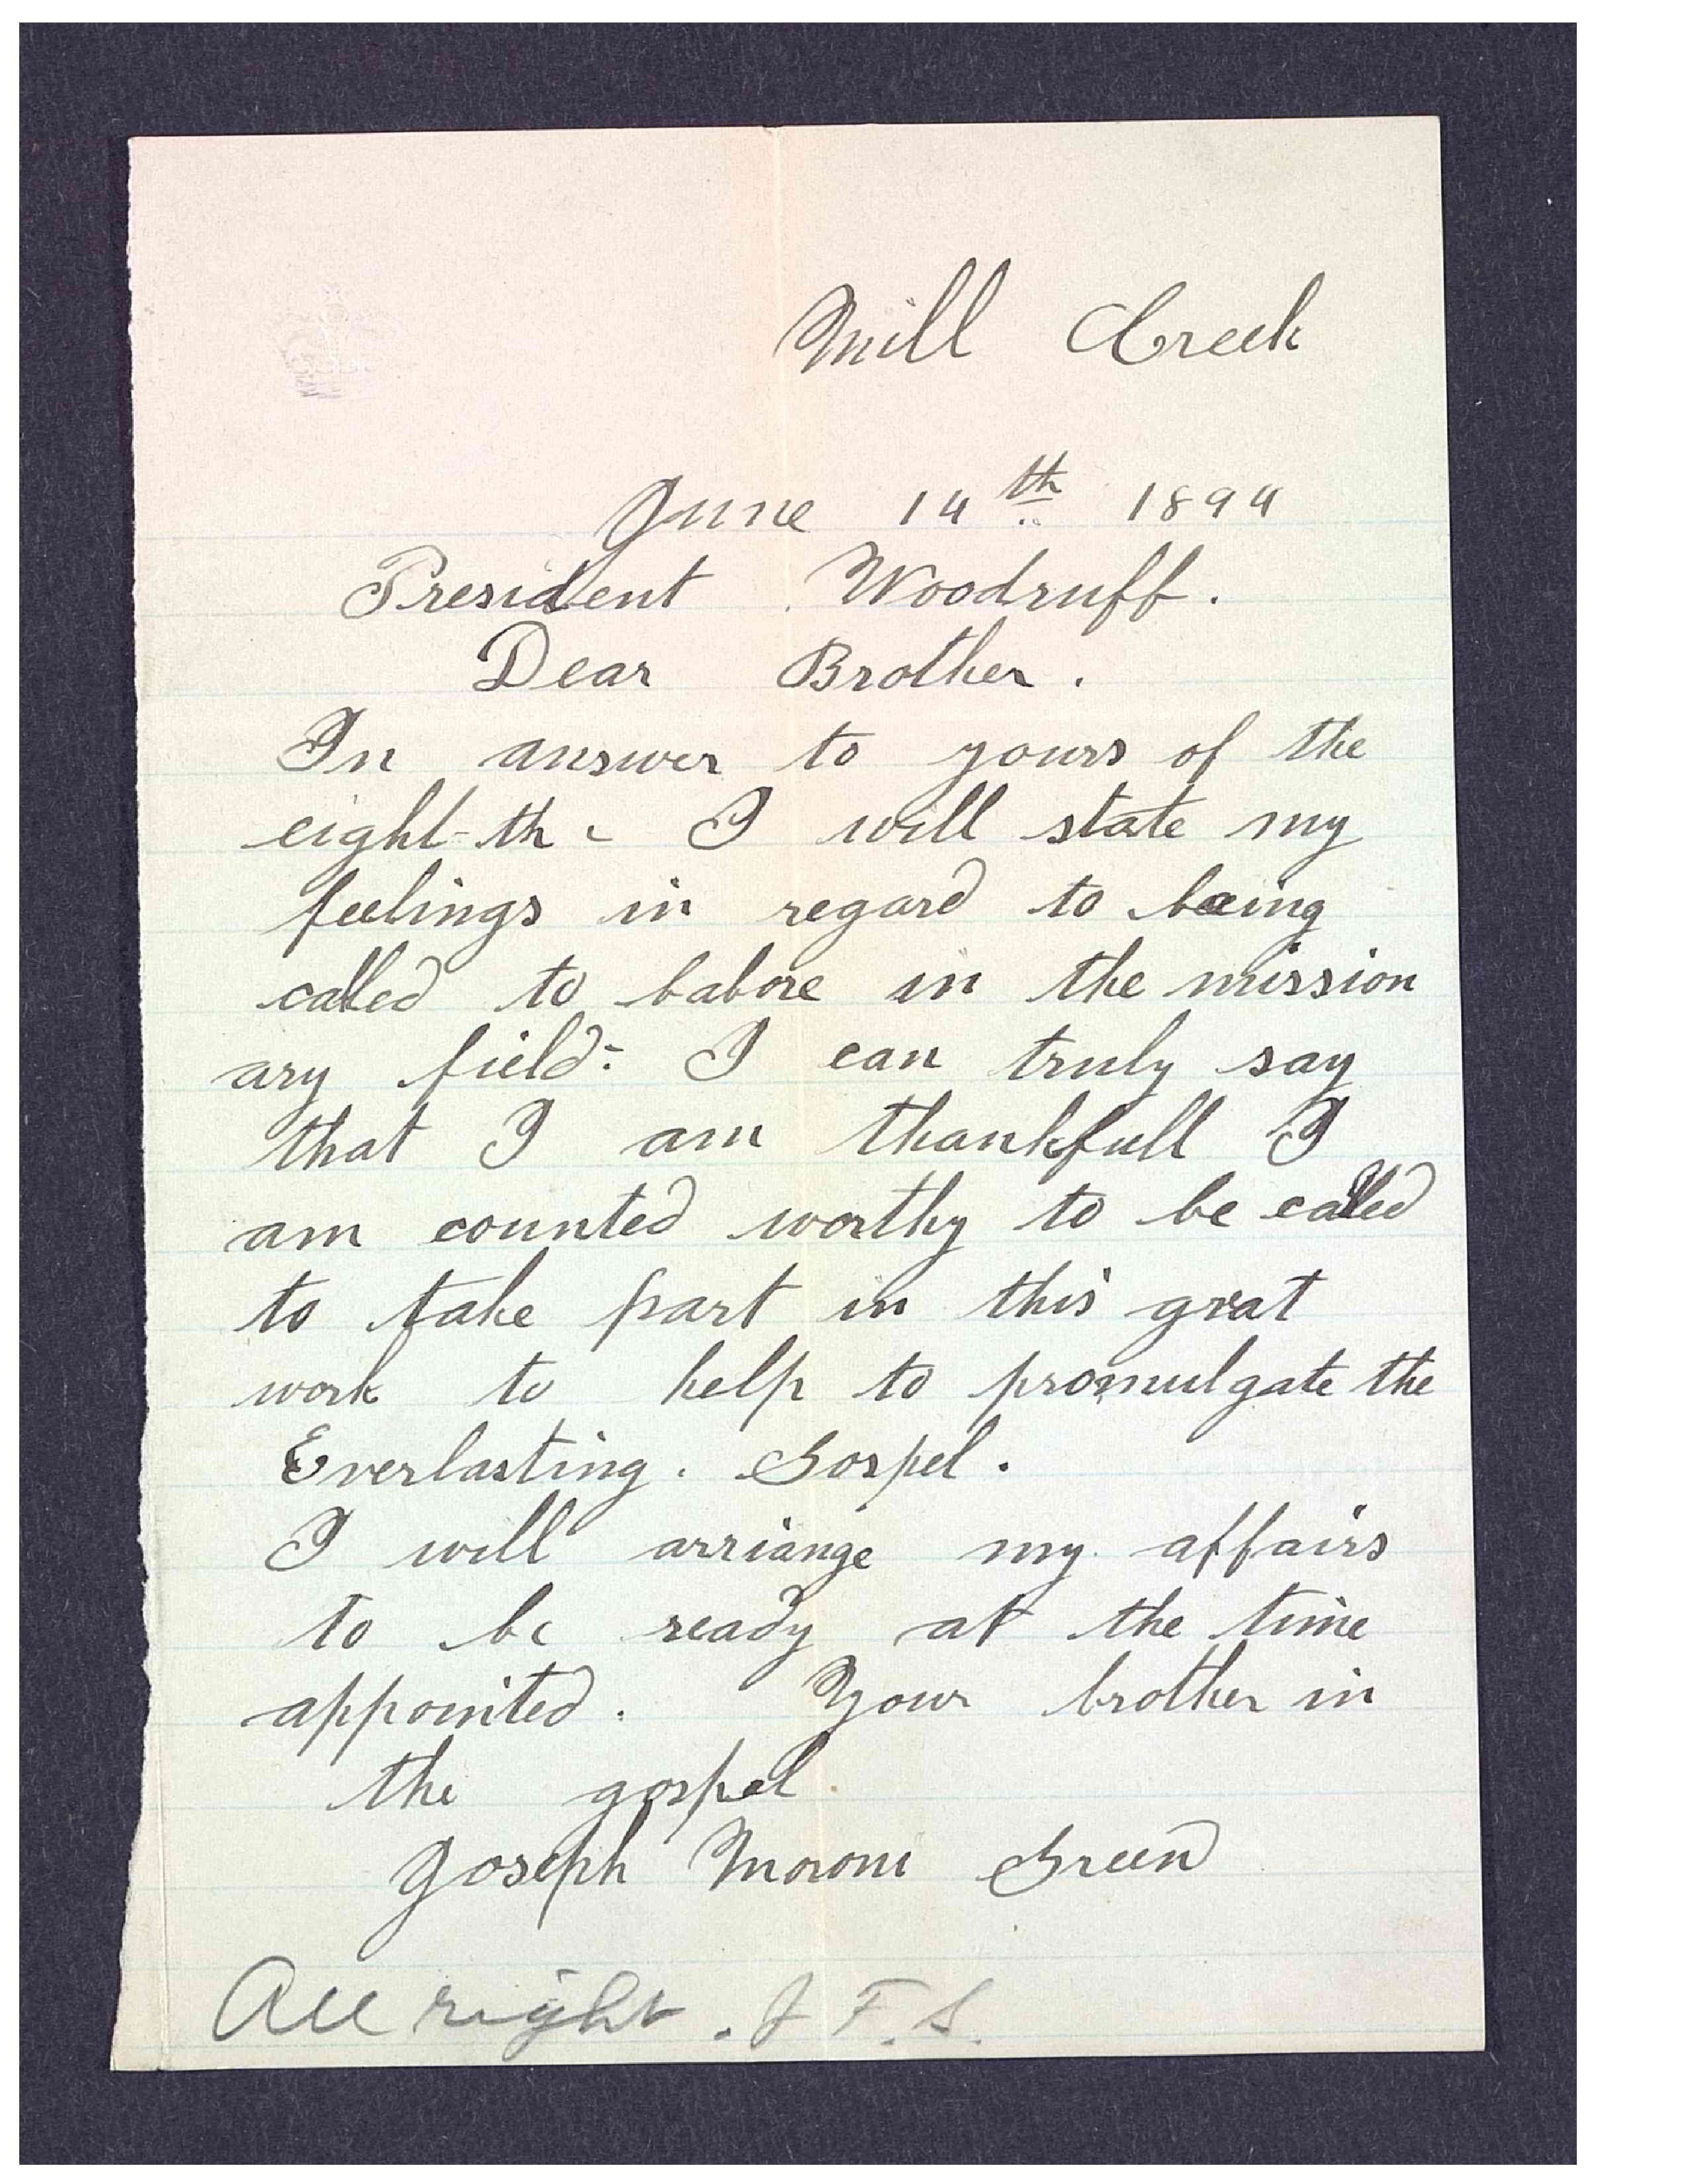 Mill Creek
June 14th 1894
President Woodruff.
Dear Brother.
In answer to yours of the
eight-th - I will state my
feelings in regard to being
called to labore in the mission
ary field:- I can truly say
that I am thankfull I
am counted worthy to be called
to take part in this grat
work to help to promulgate the
Everlasting. Gospel.
I will arriange my affairs
to be ready at the time
appointed. Your brother in
the gospel
Joseph Moroni Green
All right. J F. S.